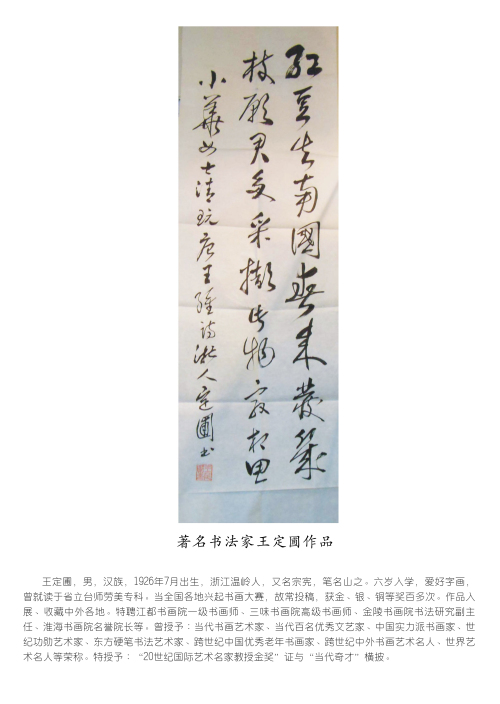 紅豆生南國春来發幾
枝願君多采撷此物最相思
小華女士清玩唐王維詩浙人定圃书
著名书法家王定圃作品
王定圃，男，汉族，1926年7月出生，浙江温岭人，又名宗宪，笔名山之。六岁入学，爱好字画，
曾就读于省立台师劳美专科。当全国各地兴起书画大赛，故常投稿，获金、银、铜等奖百多次。作品入
展、收藏中外各地。特聘江都书画院一级书画师、三味书画院高级书画师、金陵书画院书法研究副主
任、淮海书画院名誉院长等。曾授予：当代书画艺术家、当代百名优秀文艺家、中国实力派书画家、世
纪功勋艺术家、东方硬笔书法艺术家、跨世纪中国优秀老年书画家、跨世纪中外书画艺术名人、世界艺
术名人等荣称。特授予：“20世纪国际艺术名家教授金奖”证与“当代奇才”横披。